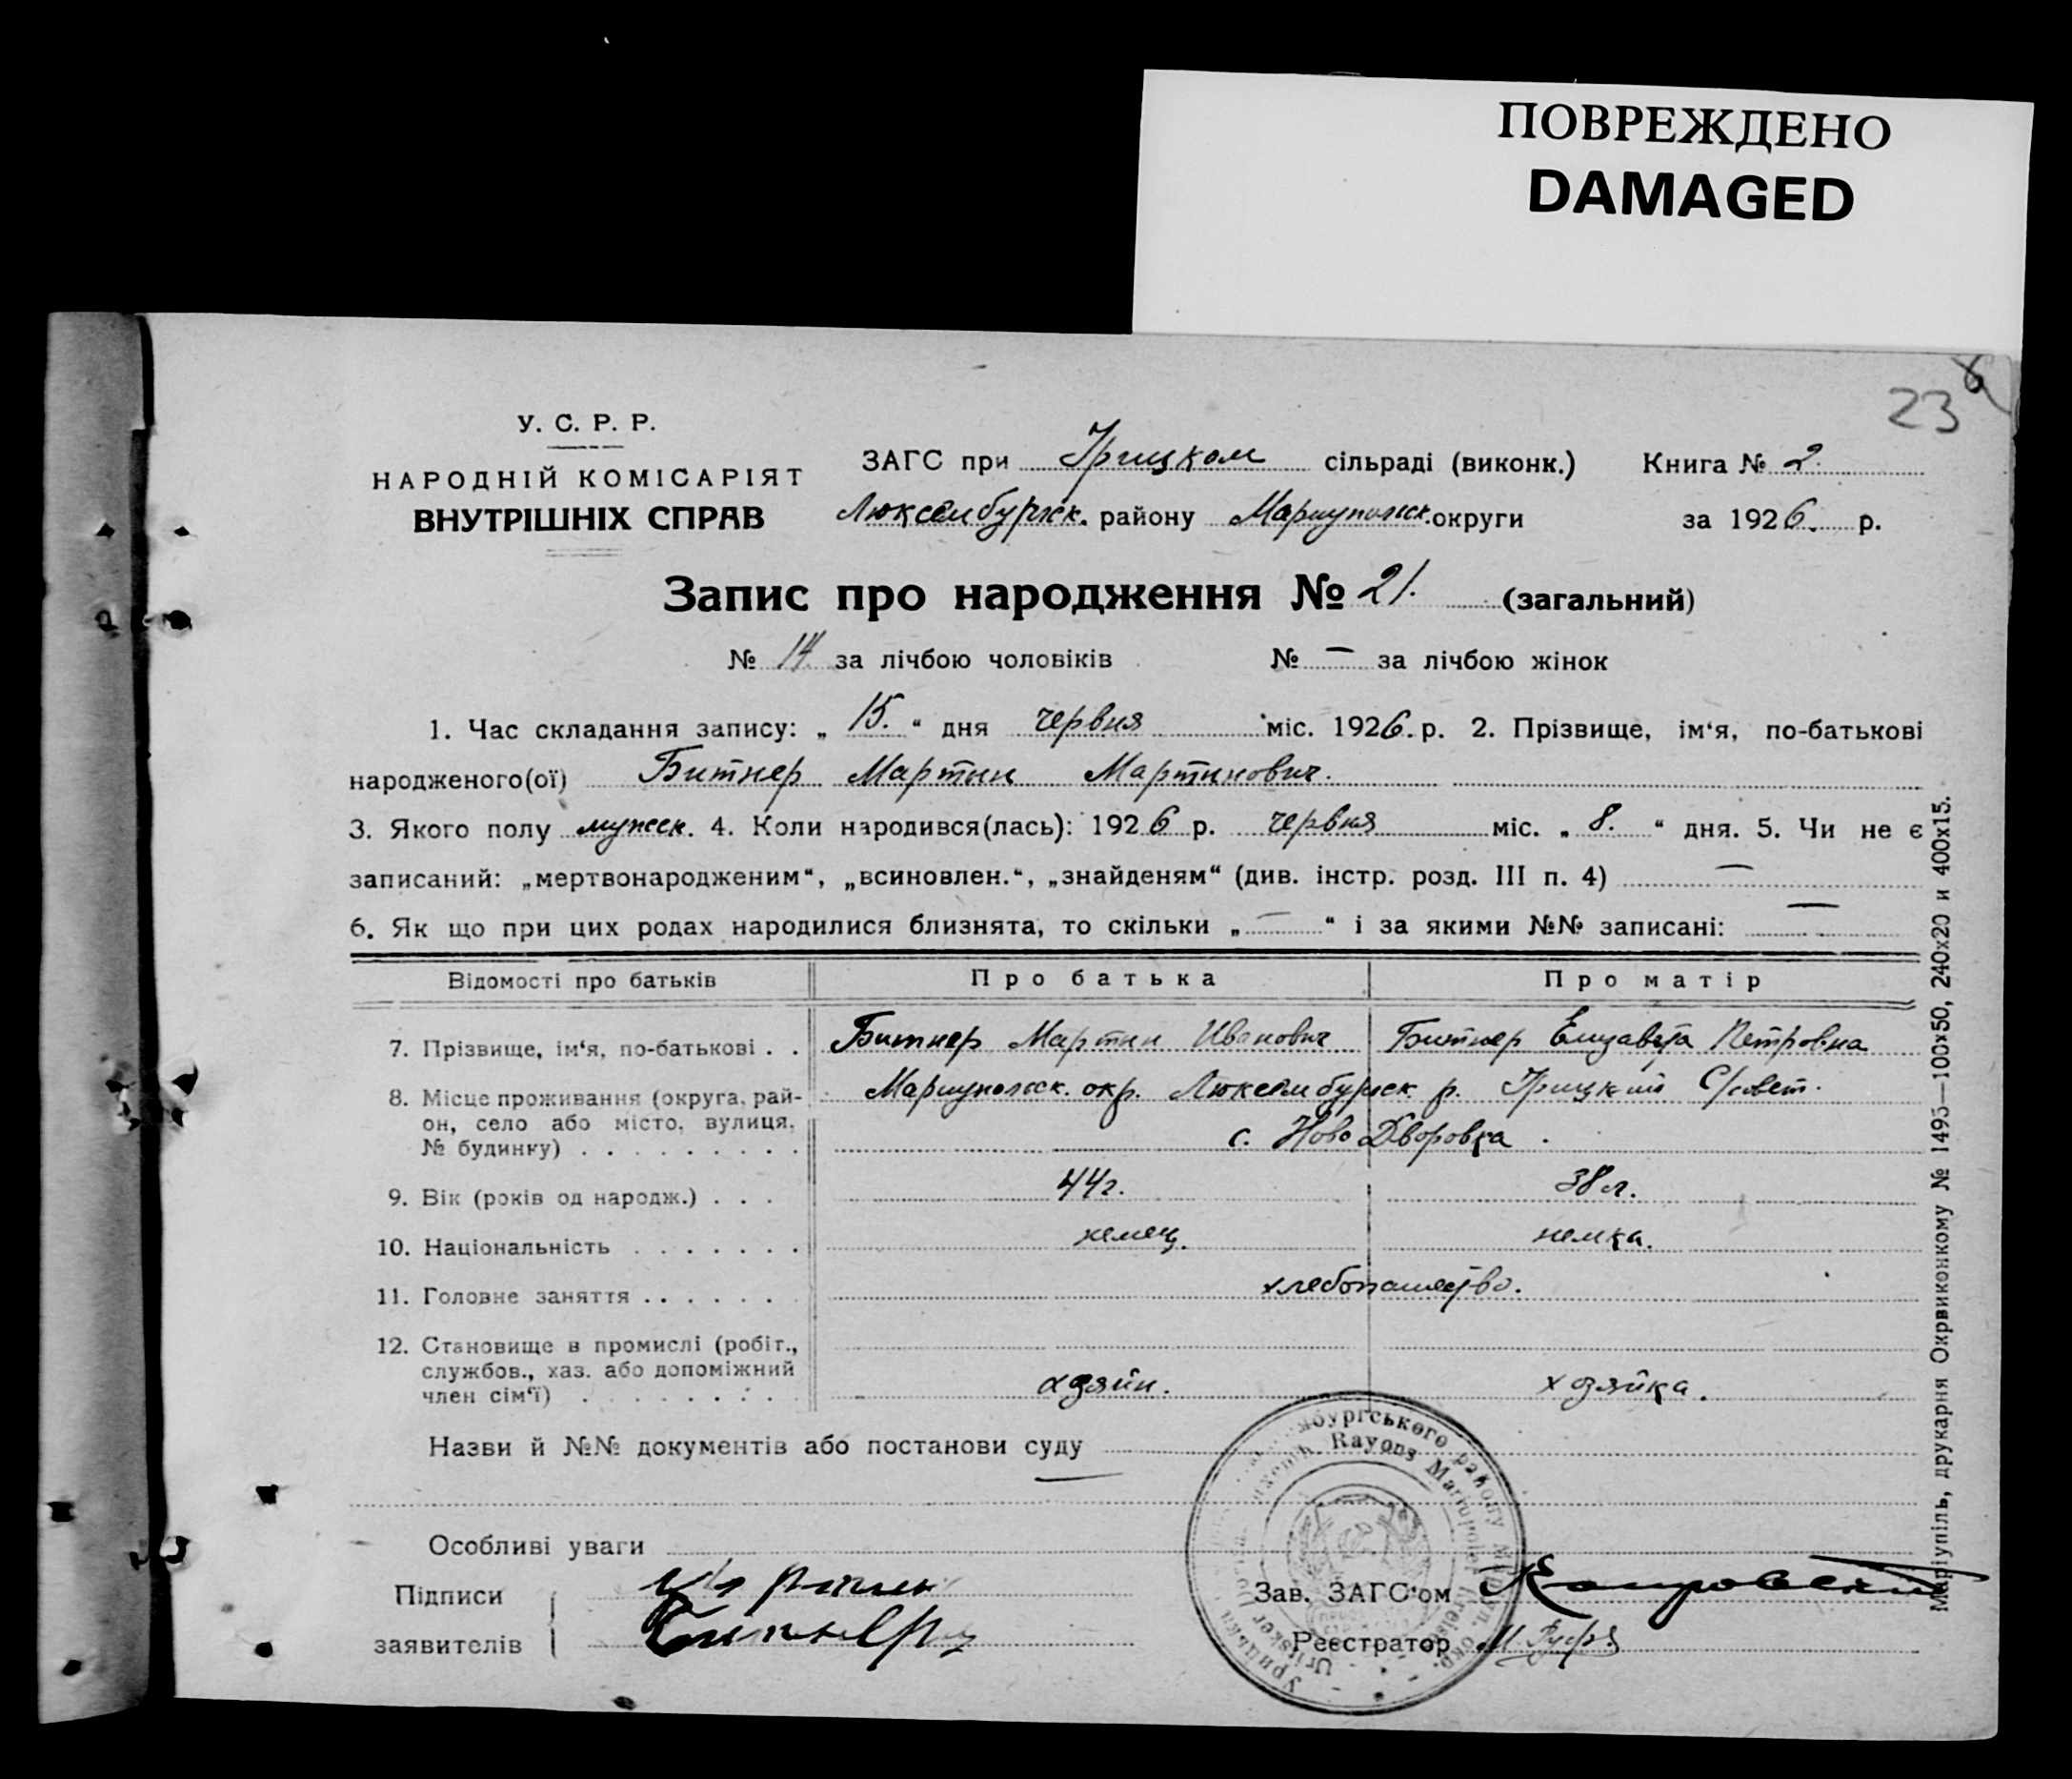 ПОВРЕЖДЕНО
DAMAGED
23
У. С. Р. Р.
НАРОДНІЙ КОМІСАРІЯТ
ВНУТРІШНІХ СПРАВ
ЗАГС при Урицком сільраді (виконк.) Книга № 2.
Люксембургск. району Мариупольск. округи за 1926. р.
Запис про народження № 21. (загальний)
№ 14 за лічбою чоловіків № — за лічбою жінок
1. Час складання запису: „ 15. “ дня червня міс. 1926. р. 2. Прізвище, ім‘я, по-батькові
народженого(ої) Битнер Мартин Мартинович.
3. Якого полу мужск. 4. Коли народився(лась): 1926 р. червня міс. „ 8. “ дня. 5. Чи не є
записаний: „мертвонародженим“, „всиновлен.“, „знайденям“ (див. інстр. розд. III п. 4) —
6. Як що при цих родах народилися близнята, то скільки „ — “ і за якими №№ записані: —
Відомості про батьків Про батька Про матір
7. Прізвище, ім‘я, по-батькові . . Битнер Мартин Иванович Битнер Елизавета Петровна
8. Місце проживання (округа, рай- Мариупольск. окр. Люксембургск р. Урицкий С/совет.
он, село або місто, вулиця,
№ будинку) . . . . . . . . . с. Ново Дворовка .
9. Вік (років од народж.) . . . 44г. 38 л.
10. Національність . . . . . . . немец. немка.
11. Головне заняття . . . . . . хлебопашество.
12. Становище в промислі (робіт.,
службов., хаз. або допоміжний
член сім‘ї) . . . . . . . . хозяин. хозяйка.
Назви й №№ документів або постанови суду —
Особливі уваги
Підписи
заявителів
Зав. ЗАГС‘ом
Реєстратор М.
бургського району
Rayons Mariupoler Kreises
Urizker
Маріупіль, друкарня Окрвиконкому № 1495—100х50, 240х20 и 400х15.